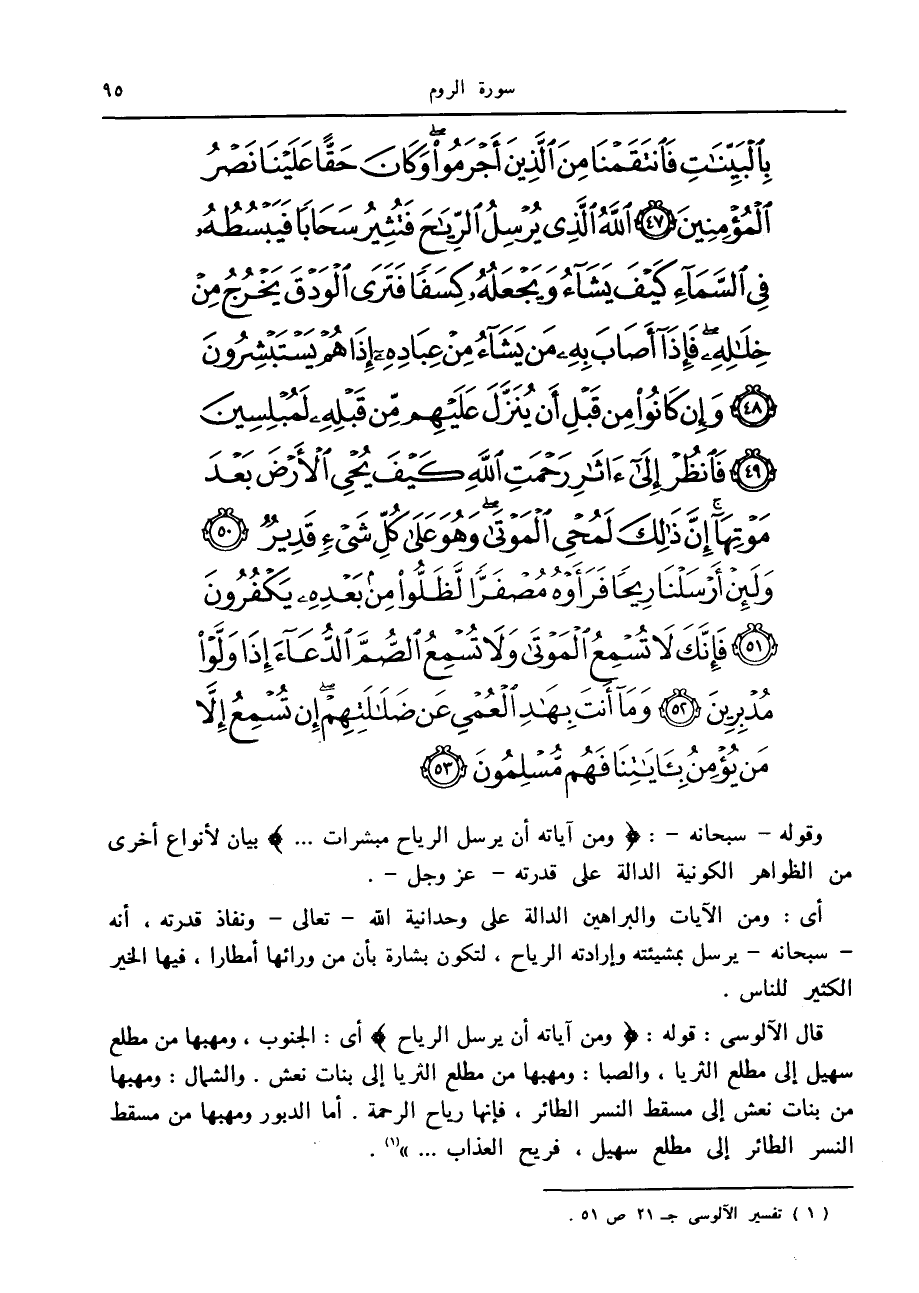 سورة الروم ٩٥
بِٱلْبَيِّنَـٰتِ فَٱنتَقَمْنَا مِنَ ٱلَّذِينَ أَجْرَمُوا۟ ۖ وَكَانَ حَقًّا عَلَيْنَا نَصْرُ
ٱلْمُؤْمِنِينَ ﴿٤٧﴾ ٱللَّهُ ٱلَّذِى يُرْسِلُ ٱلرِّيَـٰحَ فَتُثِيرُ سَحَابًا فَيَبْسُطُهُۥ
فِى ٱلسَّمَآءِ كَيْفَ يَشَآءُ وَيَجْعَلُهُۥ كِسَفًا فَتَرَى ٱلْوَدْقَ يَخْرُجُ مِنْ
خِلَـٰلِهِۦ ۖ فَإِذَآ أَصَابَ بِهِۦ مَن يَشَآءُ مِنْ عِبَادِهِۦٓ إِذَا هُمْ يَسْتَبْشِرُونَ
﴿٤٨﴾ وَإِن كَانُوا۟ مِن قَبْلِ أَن يُنَزَّلَ عَلَيْهِم مِّن قَبْلِهِۦ لَمُبْلِسِينَ
﴿٤٩﴾ فَٱنظُرْ إِلَىٰٓ ءَاثَـٰرِ رَحْمَتِ ٱللَّهِ كَيْفَ يُحْىِ ٱلْأَرْضَ بَعْدَ
مَوْتِهَآ ۚ إِنَّ ذَٰلِكَ لَمُحْىِ ٱلْمَوْتَىٰ ۖ وَهُوَ عَلَىٰ كُلِّ شَىْءٍ قَدِيرٌ ﴿٥٠﴾
وَلَئِنْ أَرْسَلْنَا رِيحًا فَرَأَوْهُ مُصْفَرًّا لَّظَلُّوا۟ مِنۢ بَعْدِهِۦ يَكْفُرُونَ
﴿٥١﴾ فَإِنَّكَ لَا تُسْمِعُ ٱلْمَوْتَىٰ وَلَا تُسْمِعُ ٱلصُّمَّ ٱلدُّعَآءَ إِذَا وَلَّوْا۟
مُدْبِرِينَ ﴿٥٢﴾ وَمَآ أَنتَ بِهَـٰدِ ٱلْعُمْىِ عَن ضَلَـٰلَتِهِمْ ۖ إِن تُسْمِعُ إِلَّا
مَن يُؤْمِنُ بِـَٔايَـٰتِنَا فَهُم مُّسْلِمُونَ ﴿٥٣﴾
وقوله – سبحانه – : ﴿ ومن آياته أن يرسل الرياح مبشرات ... ﴾ بيان لأنواع أخرى
من الظواهر الكونية الدالة على قدرته – عز وجل – .
أى : ومن الآيات والبراهين الدالة على وحدانية الله – تعالى – ونفاذ قدرته ، أنه
– سبحانه – يرسل بمشيئته وإرادته الرياح ، لتكون بشارة بأن من ورائها أمطارا ، فيها الخير
الكثير للناس .
قال الآلوسى : قوله : ﴿ ومن آياته أن يرسل الرياح ﴾ أى : الجنوب ، ومهبها من مطلع
سهيل إلى مطلع الثريا ، والصبا : ومهبها من مطلع الثريا إلى بنات نعش . والشمال : ومهبها
من بنات نعش إلى مسقط النسر الطائر ، فإنها رياح الرحمة . أما الدبور ومهبها من مسقط
النسر الطائر إلى مطلع سهيل ، فريح العذاب ... »(١) .
( ١ ) تفسير الآلوسى جـ ٢١ ص ٥١ .